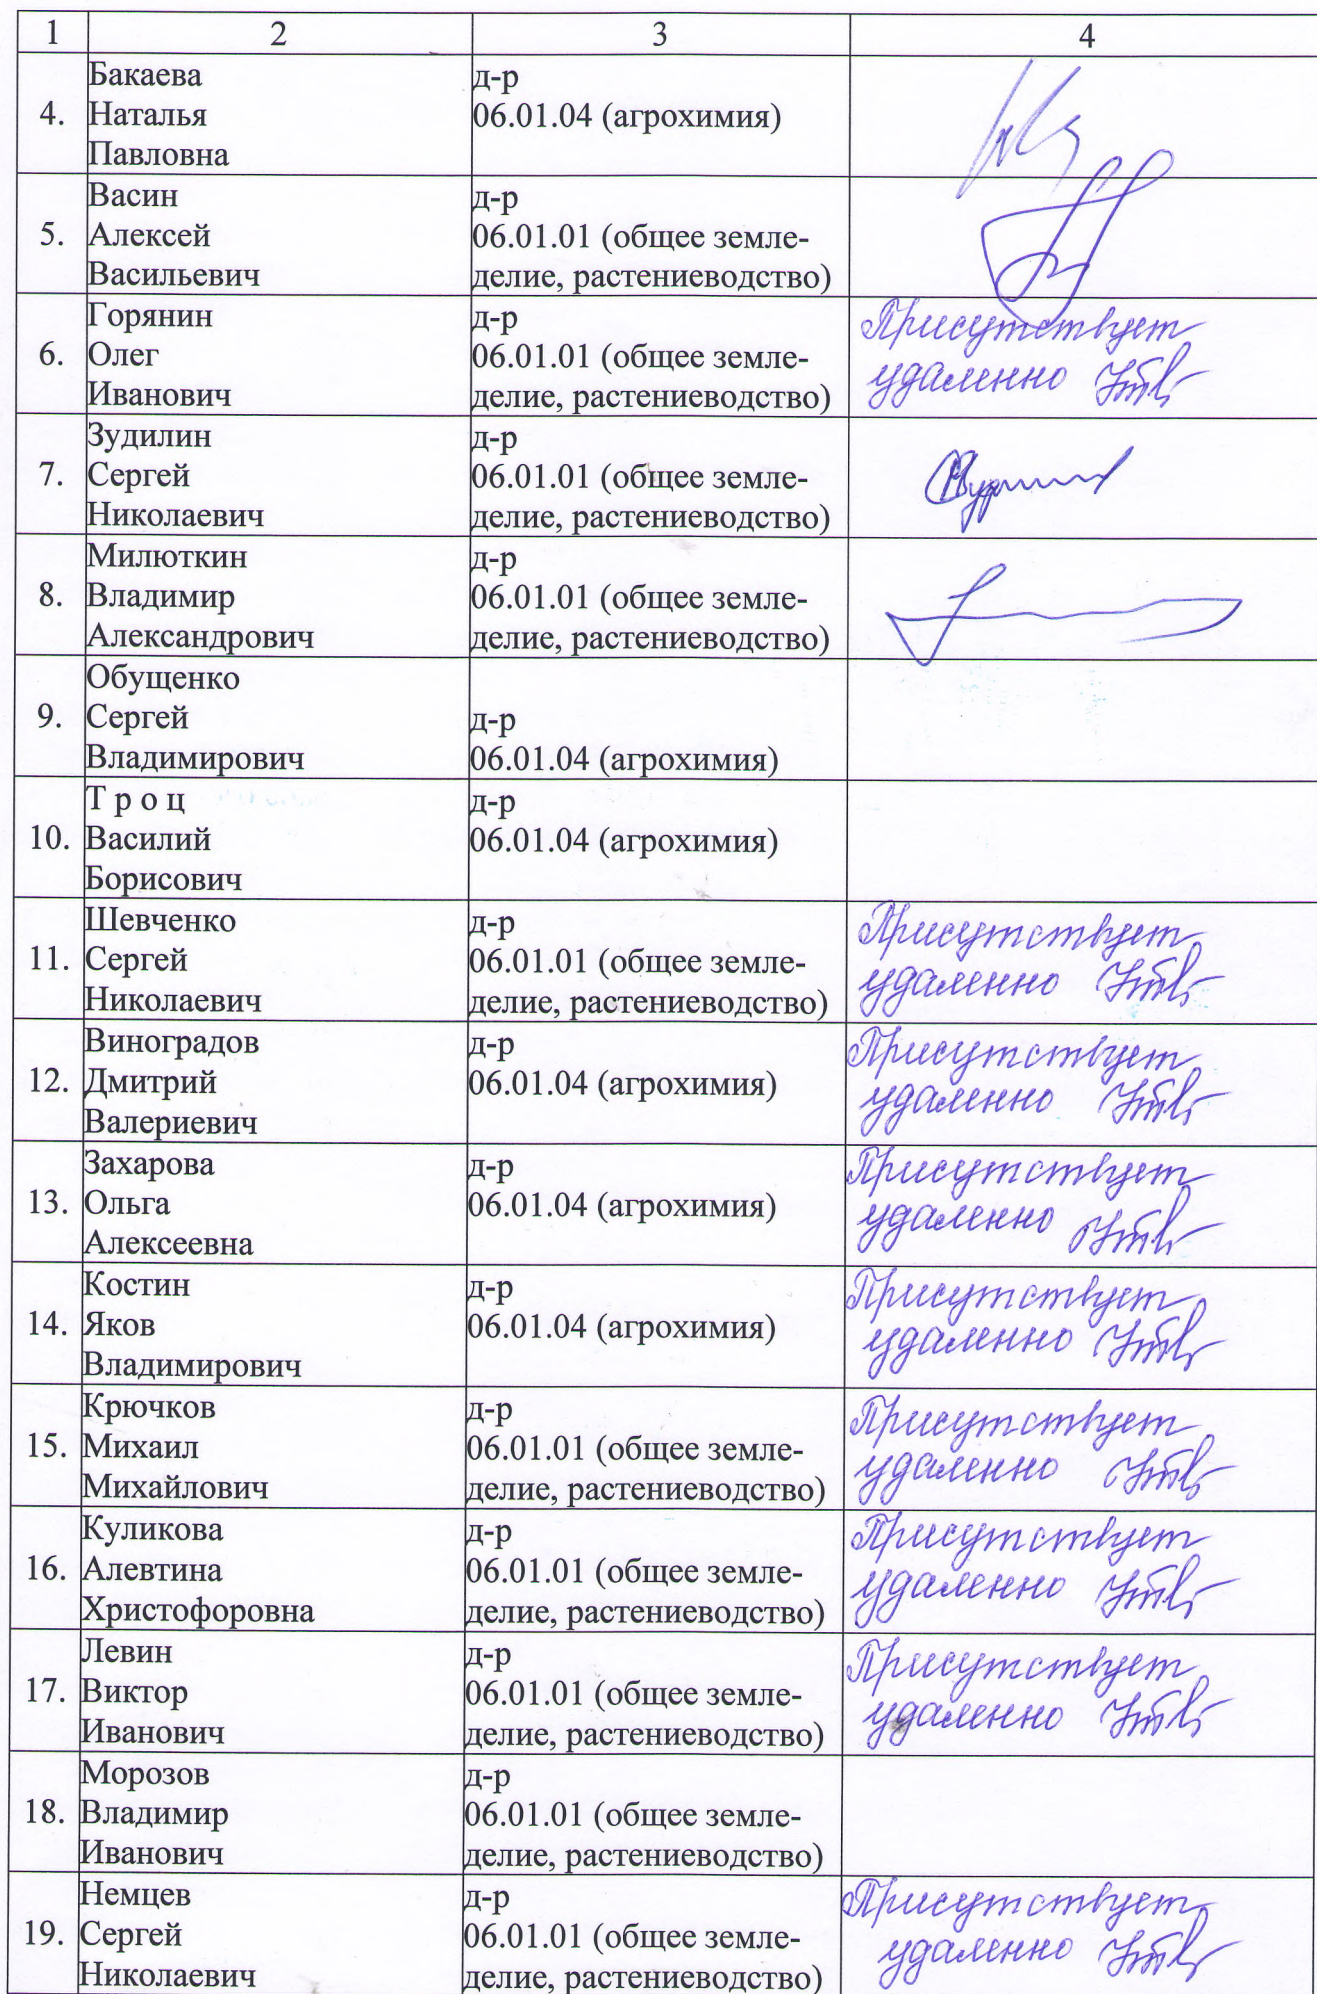 1 2 3 4
Бакаева
Наталья
Павловна
4.
д-р
06.01.04 (агрохимия)
Васин
Алексей
Васильевич
5.
д-р
06.01.01 (общее земле-
делие, растениеводство)
Горянин
Олег
Иванович
6.
д-р
06.01.01 (общее земле-
делие, растениеводство)
Присутствует
удаленно
Зудилин
Сергей
Николаевич
7.
д-р
06.01.01 (общее земле-
делие, растениеводство)
Милюткин
Владимир
Александрович
8.
д-р
06.01.01 (общее земле-
делие, растениеводство)
Обущенко
Сергей
Владимирович
9.
д-р
06.01.04 (агрохимия)
Т р о ц
Василий
Борисович
10.
д-р
06.01.04 (агрохимия)
Шевченко
Сергей
Николаевич
11.
д-р
06.01.01 (общее земле-
делие, растениеводство)
Присутствует
удаленно
Виноградов
Дмитрий
Валериевич
12.
д-р
06.01.04 (агрохимия)
Присутствует
удаленно
Захарова
Ольга
Алексеевна
13.
д-р
06.01.04 (агрохимия)
Присутствует
удаленно
Костин
Яков
Владимирович
14.
д-р
06.01.04 (агрохимия)
Присутствует
удаленно
Крючков
Михаил
Михайлович
15.
д-р
06.01.01 (общее земле-
делие, растениеводство)
Присутствует
удаленно
Куликова
Алевтина
Христофоровна
16.
д-р
06.01.01 (общее земле-
делие, растениеводство)
Присутствует
удаленно
Левин
Виктор
Иванович
17.
д-р
06.01.01 (общее земле-
делие, растениеводство)
Присутствует
удаленно
Морозов
Владимир
Иванович
18.
д-р
06.01.01 (общее земле-
делие, растениеводство)
Немцев
Сергей
Николаевич
19.
д-р
06.01.01 (общее земле-
делие, растениеводство)
Присутствует
удаленно